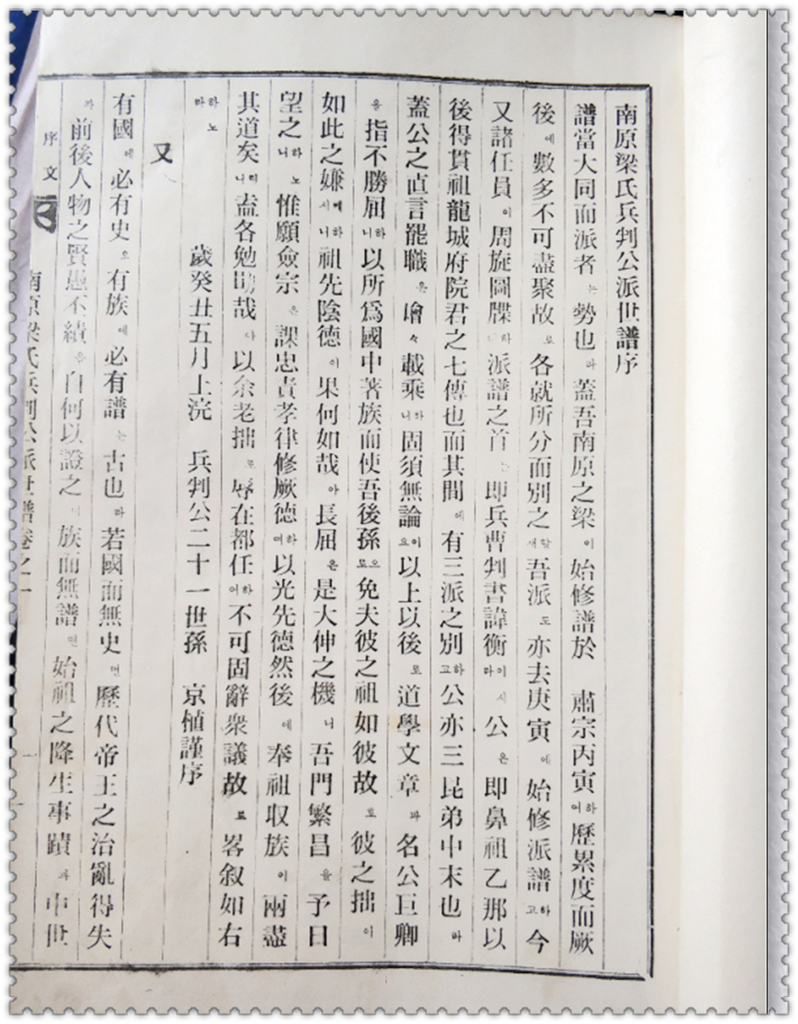 南原梁氏兵判公派世譜序
譜當大同而派者는勢也라蓋吾南原之梁이始修譜於 肅宗丙寅하여歷累度而厥
後에數多不可盡聚故로各就所分而別之할새吾派도亦去庚寅에始修派譜하고今
又諸任員이周旋圖牒하派譜之首는即兵曹判書諱衡이시라公은即鼻祖乙那以
後得貫祖龍城府院君之七傳也而其間에有三派之別하고公亦三昆弟中末也라
蓋公之直言罷職은噲々載乘하니固須無論이요以上以後로道學文章과名公巨卿
을指不勝屈하니以所爲國中著族而使吾後孫으로免夫彼之祖如彼故로彼之拙이
如此之嫌케하시니祖先陰德이果何如哉아長屈은是大伸之機니吾門繁昌을予日
望之하노니惟願僉宗은課忠責孝律修厥德하여以光先德然後에奉祖収族이兩盡
其道矣리니盍各勉勖哉다以余老拙로辱在都任하여不可固辭衆議故로畧叙如右
하노라
歲癸丑五月上浣 兵判公二十一世孫 京植謹序
又
有國에必有史오有族에必有譜는古也라若國而無史면歷代帝王之治亂得失
과前後人物之賢愚不績을自何以證之며族而無譜면始祖之降生事蹟과中世
序文
南原梁氏兵判公派世譜卷之一